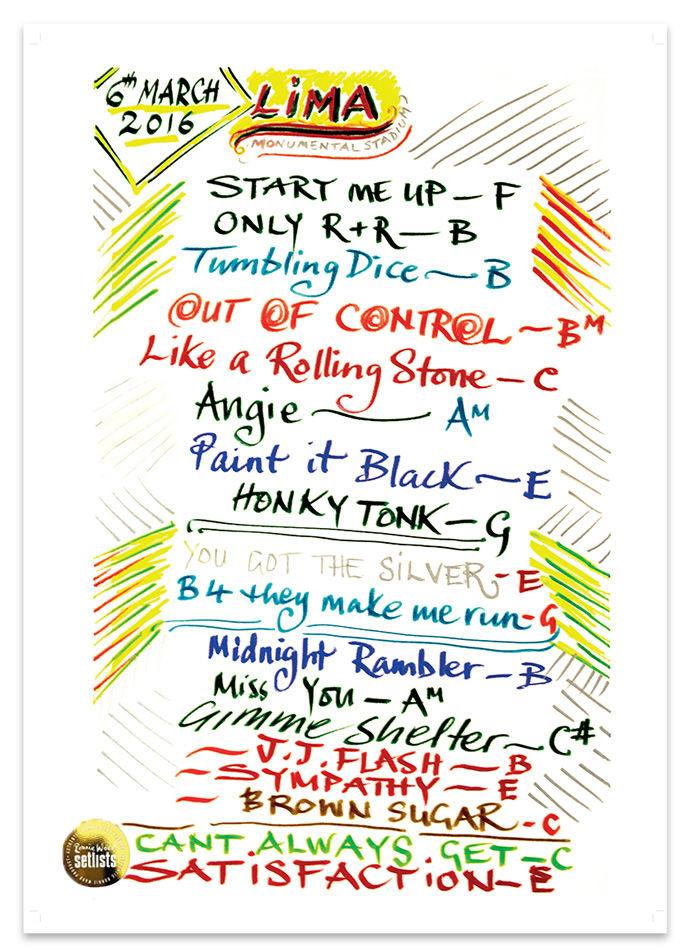 6th MARCH
2016
LiMA
MONUMENTAL STADIUM
START ME UP – F
ONLY R+R – B
Tumbling Dice ~ B
OUT OF CONTROL ~ BM
Like a Rolling Stone – C
Angie — AM
Paint it Black ~ E
HONKY TONK – G
YOU GOT THE SiLVER – E
B4 they make me run – G
Midnight Rambler – B
Miss You – AM
GiMME Shelter ~ C#
– J.J. FLASH – B
– SYMPATHY – E
BROWN SUGAR – C
CANT. ALWAYS. GET – C
SATiSFACTiON – E
Ronnie Wood
setlists